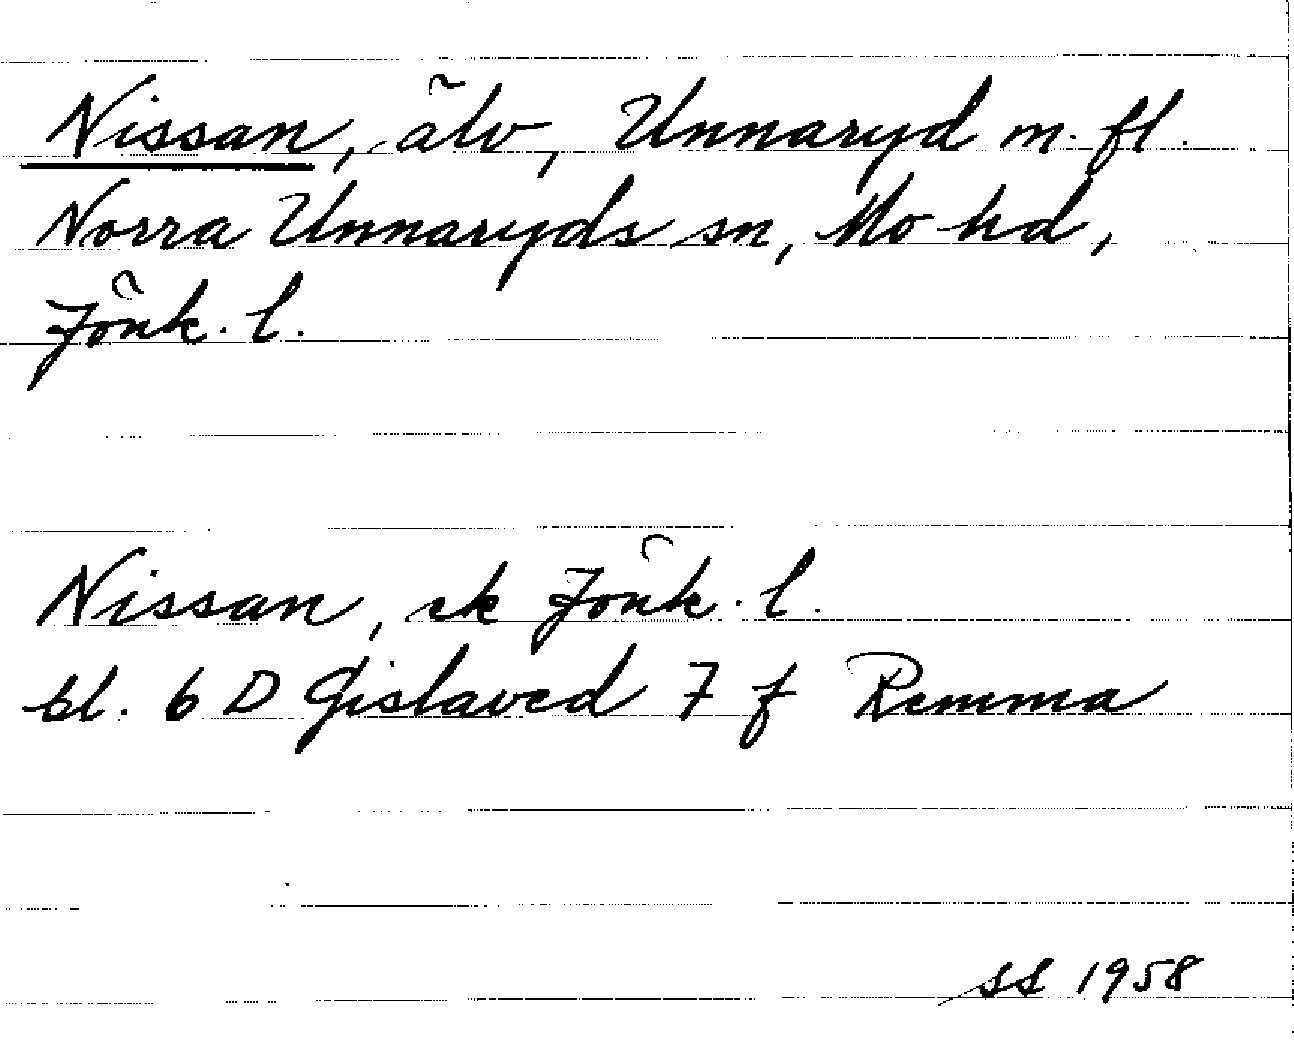 Nissan, älv, Unnaryd m. fl.
Norra Unnaryds sn, Mo hd,
Jönk. l.
Nissan, ek Jönk. l.
bl. 6 D Gislaved 7 f Remma
SS 1958